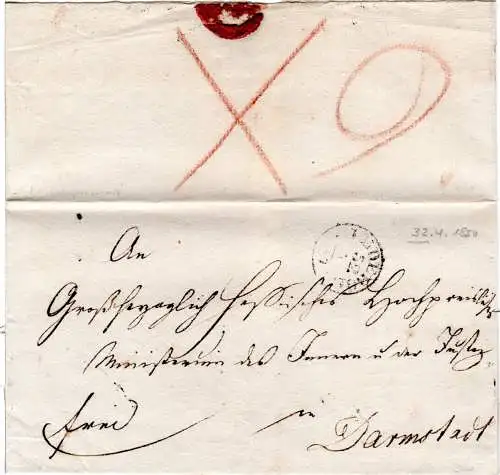 X 9
32. 4. 1850
An
Großherzoglich Hessisches Hochpreisl.
Ministerium des Innern u der Justiz
frei in Darmstadt